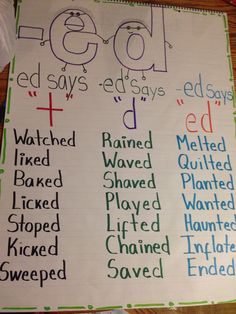 -ed
-ed says -ed says -ed says
"t" "d" "ed"
Watched Rained Melted
liked Waved Quilted
Baked Shaved Planted
Licked Played Wanted
Stoped Lifted Haunted
Kicked Chained Inflate
Sweeped Saved Ended